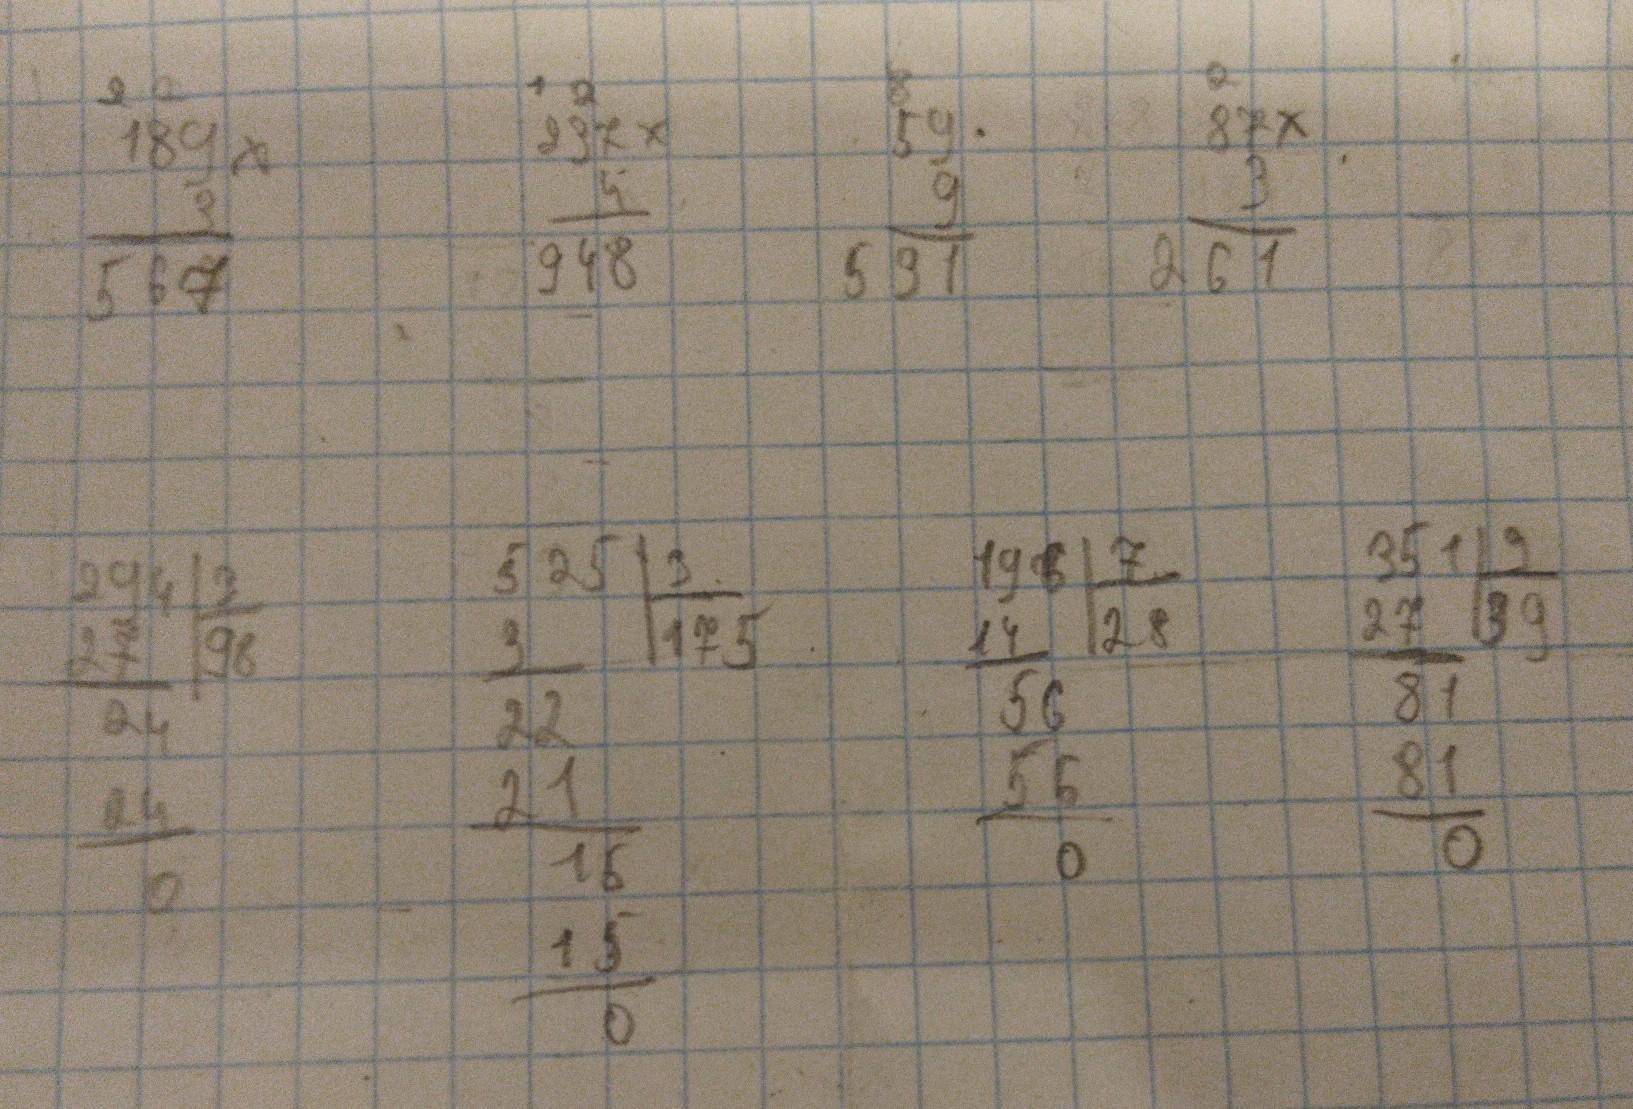 2 2
189 x
3
567
1 2
237 x
5
948
8
59 .
9
531
2
87 x
3
261
294 | 3
27 | 98
24
24
0
525 | 3
3 | 175
22
21
15
15
0
196 | 7
14 | 28
56
56
0
351 | 9
27 | 39
81
81
0